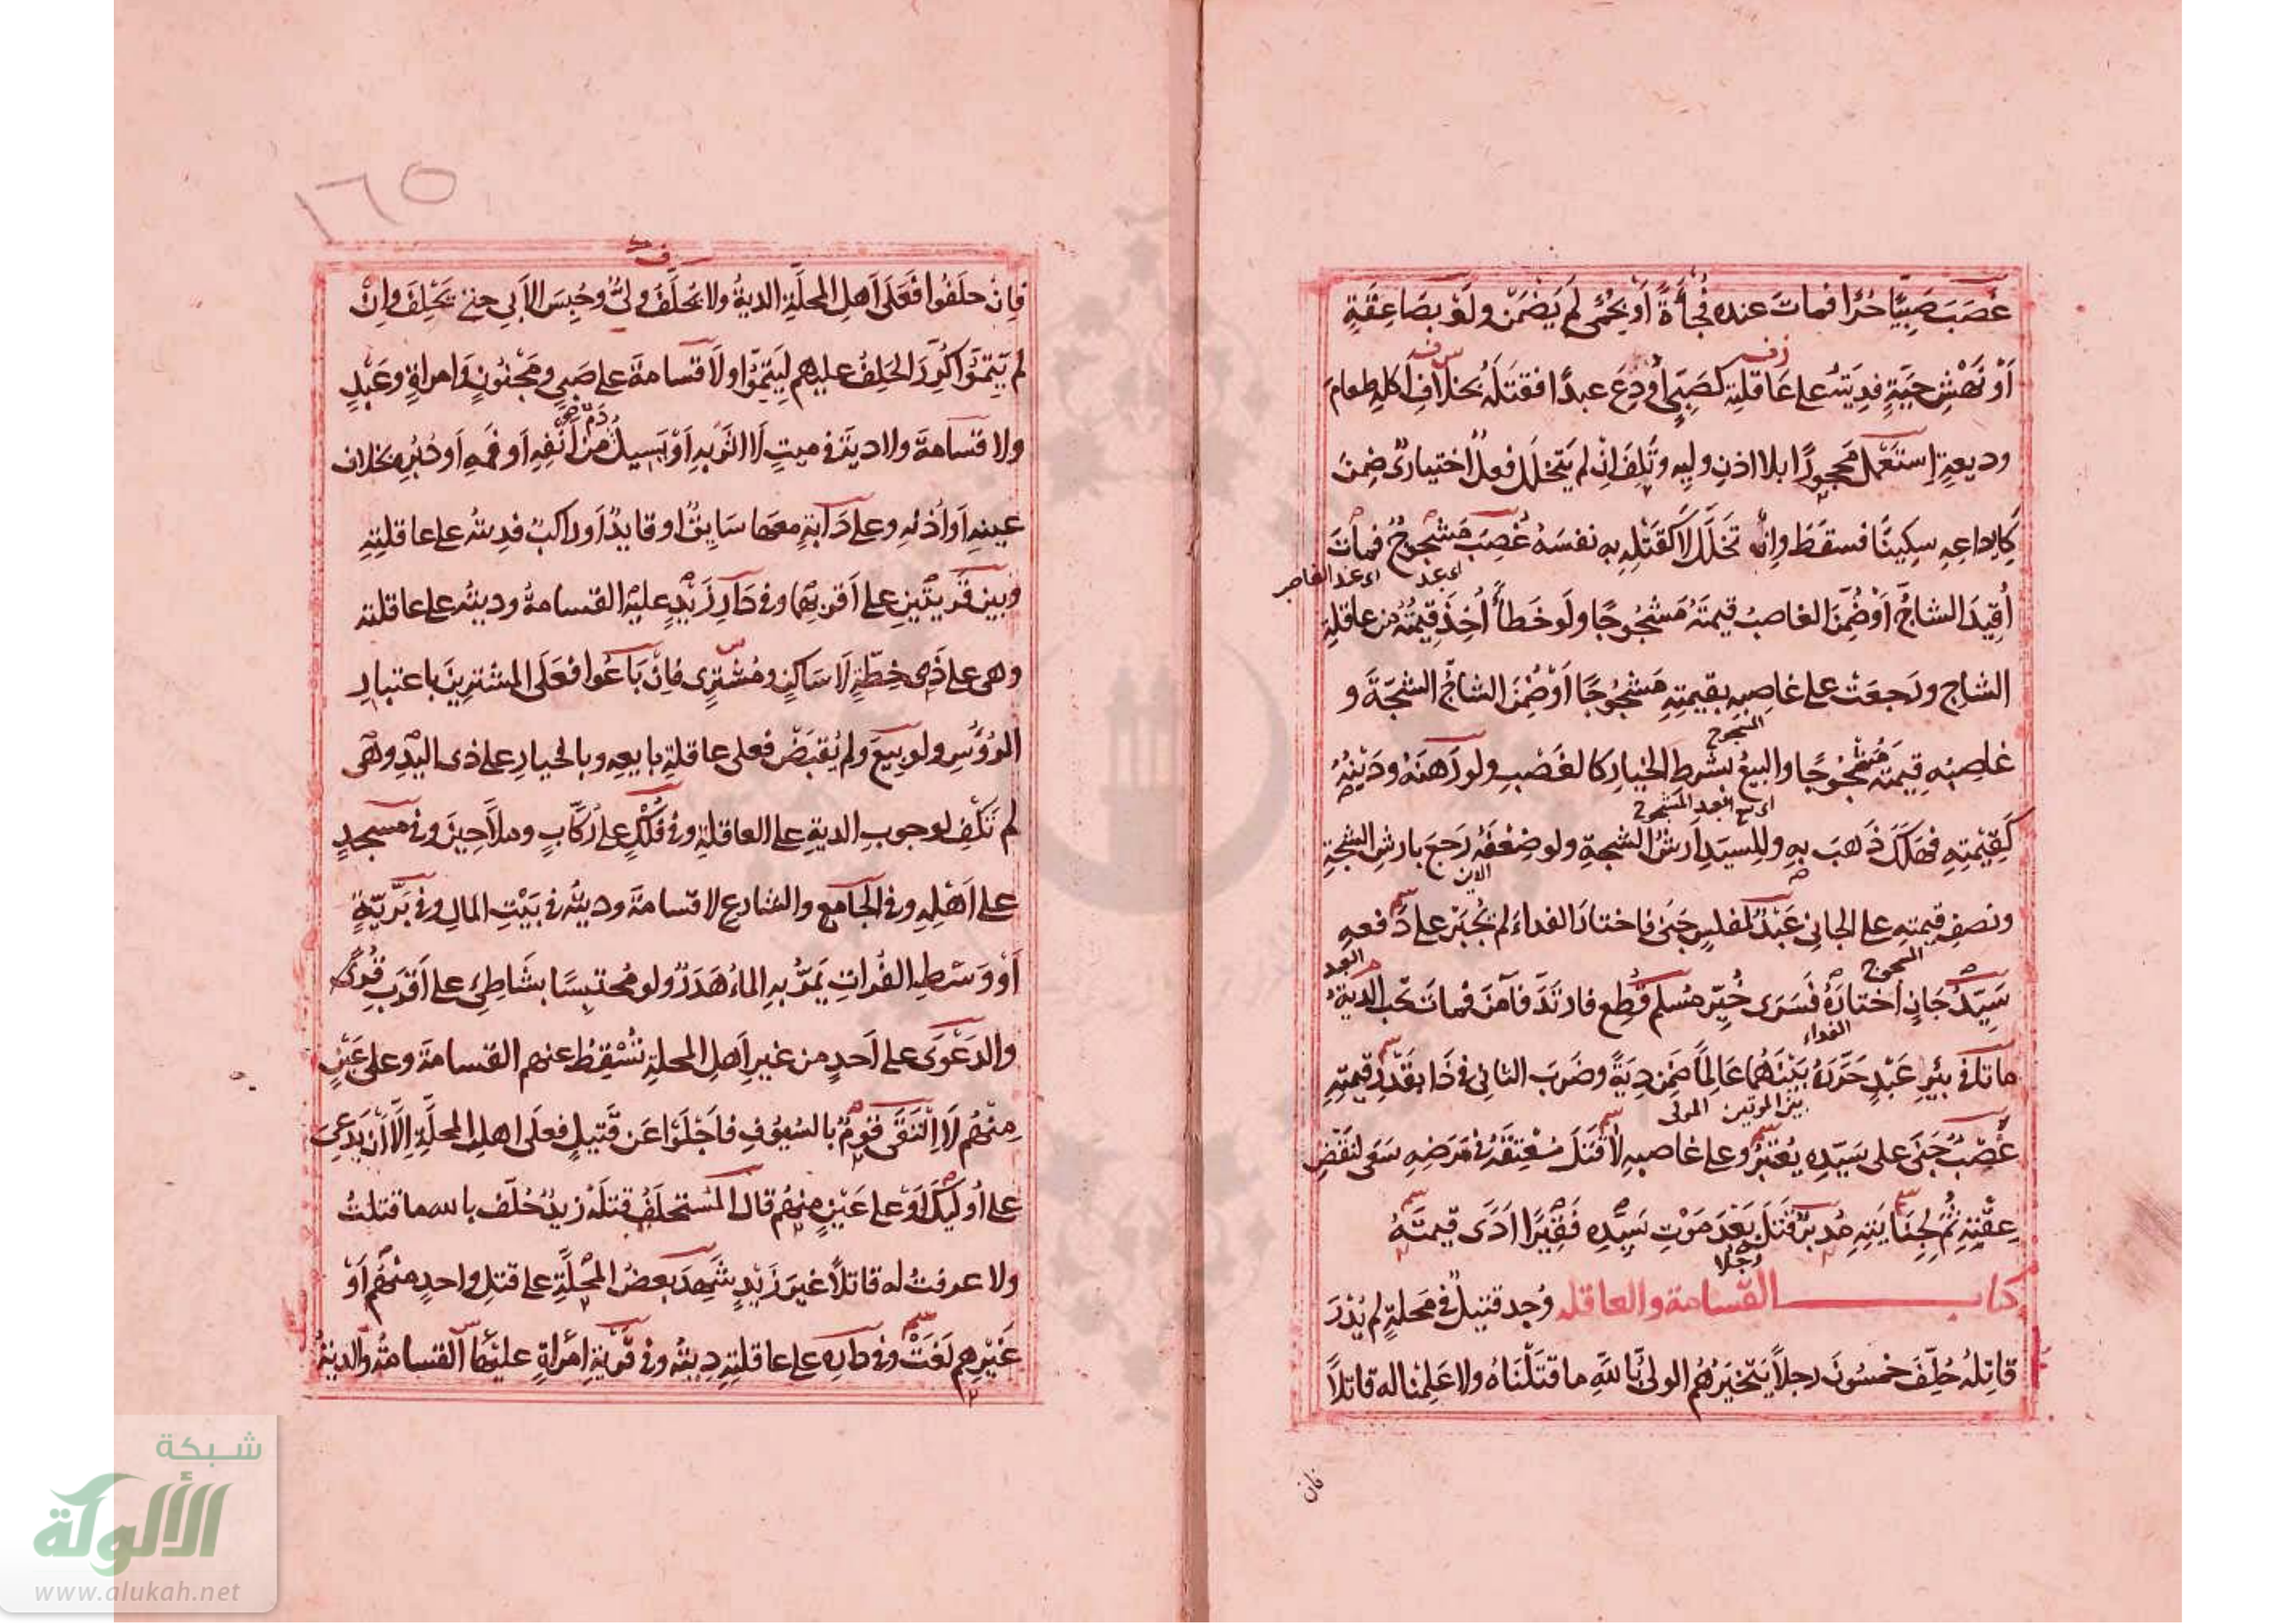 غَصَبَ صَبِيًّا حُرًّا فمات عنده فُجْأَةً أو بِحُمَّى لم يَضْمَن ولو بصَاعِقَةٍ
أو نَهْشِ حيَّةٍ فدِيَتُه على عَاقلتِه كصَبِيٍّ أُودِعَ عبدًا فقتَلَهُ بخلافِ أكلِهِ طعامَ
وديعةٍ إستَعْمَلَ مَحجورًا بلا اذنِ وليه وتَلِفَ إنْ لم يَتخلَّل فعلٌ اختياريٌّ ضمنَ
كإيداعِهِ سِكِينًا فسقَطَ وإنْ تَخَلَّلَ لا كقَتْلِهِ به نفسَهُ غُصِبَ مَشجوجٌ فماتَ
أُقِيدَ الشاجُّ أَوْ ضُمِّنَ الغاصبُ قيمتَهُ مَشْجُوجًا ولَو خطأً أُخِذَ قيمتُهُ من عاقلةِ
الشاج ورَجعَتْ على غاصبِهِ بقيمتِهِ مَشجُوجًا أوْ ضُمِّنَ الشاجُّ الشجَّةَ و
غاصبُه قِيمتَه مَشْجُوجًا والبيعُ بشرطِ الخيارِ كالغَصْبِ ولو رَهنَهُ ودَيْنُهُ
كَقِيْمتِهِ فهَلَكَ ذَهبَ بهِ وللسيِدِ أرشُ الشجةِ ولو ضِعْفَهُ رَجعَ بارشِ الشجةِ
ونصفِ قيمتهِ على الجاني عَبْدٌ لمفلسٍ جَنى فاختارَ الفداءَ لم يُجْبَرْ على دَفعهِ
سَيِّدُ جَانٍ اختارَهُ فَسَرَى خُيِّر مُسلم قُطِع فارتَدَّ فآمنَ فماتَ تجب الديةُ
ماتا في بئرِ عَبْدٍ حَرَّرَهُ بَيْنَهُمَا عَالِمًا ضَمِنَ دِيَةً وضَرَبَ الثاني في ذَا بقَدْرِ قيمتِهِ
غَصْبٌ جَنَى على سَيّدِه يُعْتَبَرُ وعلى غاصبهِ لا قَتَلَ مُعْتِقَهُ في مَرَضِهِ سَعَى لنَقْضِ
عِتْقِهِ ثُمَّ لِجِنَايَتِهِ مُدبرٌ قَتَلَ بَعْدَ مَوْتِ سَيِّدِه فَقِيرًا أدَّى قيمتَهُ
كتاب القَسامة والعاقله وُجِد قتيلٌ في مَحلةٍ لم يُدْرَ
قاتِلُه حُلِّفَ خمسُونَ رجلاً يَتخيَّرُهُم الوليُّ باللهِ ما قَتَلْنَاهُ ولا عَلِمْنا له قاتلاً
فان
١٦٥
فإنْ حلَفُوا فَعَلَى أهلِ المحلَّةِ الديةُ ولا يُحلَّفُ وليٌّ وحُبِسَ الآبي حتى يَحْلِفَ وإنْ
لم يَتِمُّوا كُرِّرَ الحَلِفُ عليهم لِيَتِمُّوا ولا قَسامةَ على صَبيٍ ومَجْنُونٍ وامراةٍ وعَبْدٍ
ولا قسامةَ ولا ديةَ في ميتٍ لا اثَرَ بهِ أوْ يَسِيلُ من أَنْفِهِ أو فَمِهِ أو دُبُرِه بخلاف
عينِهِ أو أُذنِهِ وعلى دَابةٍ معها سَايِقٌ او قايدٌ أو راكبٌ فدِيتُه على عاقلتِهِ
وبين قَريتَينِ على أقربِهما وفي دَارِ زَيْدٍ عليْهِ القسامةُ وديتُه على عاقلته
وهي على ذي خِطَّةٍ لا ساكنٍ ومُشْتَرٍي فإنْ بَاعُوا فعَلَى المشترِينَ باعتبارِ
الرُؤُسِ ولو بِيعَ ولم يُقبَضْ فعلى عاقلةِ بايعِه وبالخيارِ على ذى اليَدِ وهى
لم تكفِ لوجوبِ الديةِ على العاقلةِ وفي فُلْكٍ على رُكّابٍ وملاّحِينَ وفي مَسجدٍ
على أهْلِهِ وفي الجَامع والشارع لا قسامةَ وديتُه في بَيْتِ المالِ وفي بَرِّيَّةٍ
أوْ وَسَطِ الفُراتِ يَمُرُّ بهِ الماءُ هَدَرٌ ولو مُحتبِسًا بشَاطِئٍ على أقرَبِ قُرًى
والدَعْوَى على أحدٍ من غيرِ أهلِ المحلةِ تُسْقِطُ عنهم القسامةَ وعلى عَيْنٍ
مِنْهُم لا إلْتَقَى قومٌ بالسُيُوفِ فأَجْلَوْا عَن قَتِيلٍ فعلَى أهلِ المحلَّةِ إلاَّ أن يدَعى
على أُوليكَ أوْ على عَيْنٍ منهُم قال المُستَحلَفُ قتلَهُ زيدٌ حُلِّف بالله ما قتلتُ
ولا عرفتُ له قاتلاً غيرَ زَيْدٍ شَهِدَ بعضُ المَحلَّةِ على قتلِ واحدٍ منهُم أوْ
غَيْرِهِم لَغَتْ وفي دارِه على عاقلتِهِ دِيتُه وفي قَرْيةِ امْرأةٍ عليْها القسامةُ والديةُ
شبكة
الألوكة
www.alukah.net